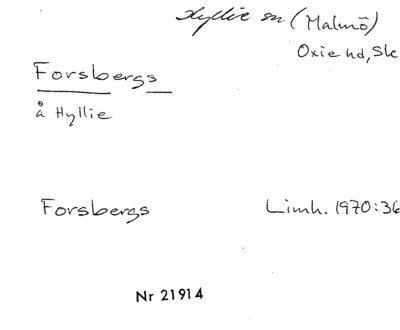 Hyllie sn (Malmö)
Oxie hd, Sk
Forsbergs
å Hyllie
Forsbergs Limh. 1970:36
Nr 21914